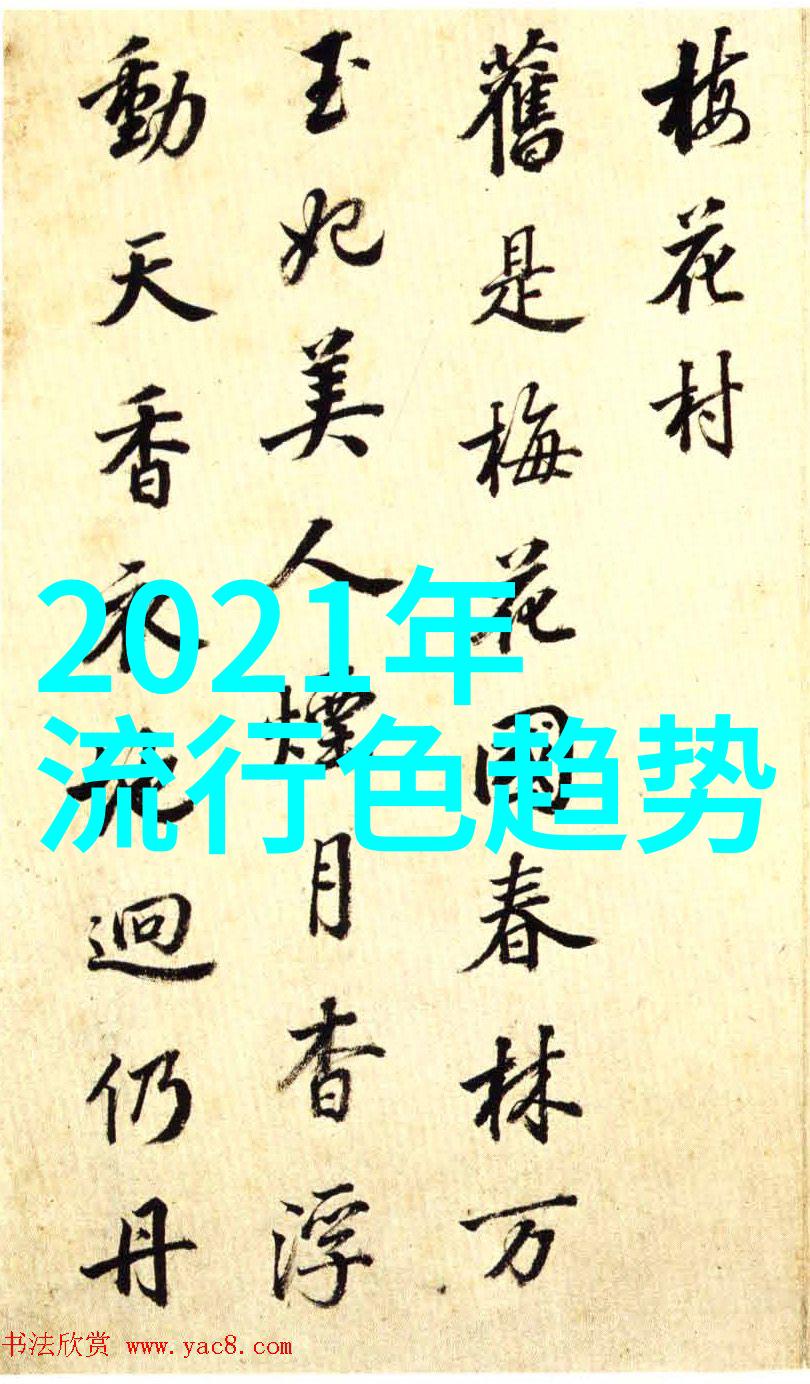 梅花村
舊是梅花園春林万
玉妃美人煙月杳浮
動天香衣迴仍丹
2021年
流行色趋势
书法欣赏 www.yac8.com